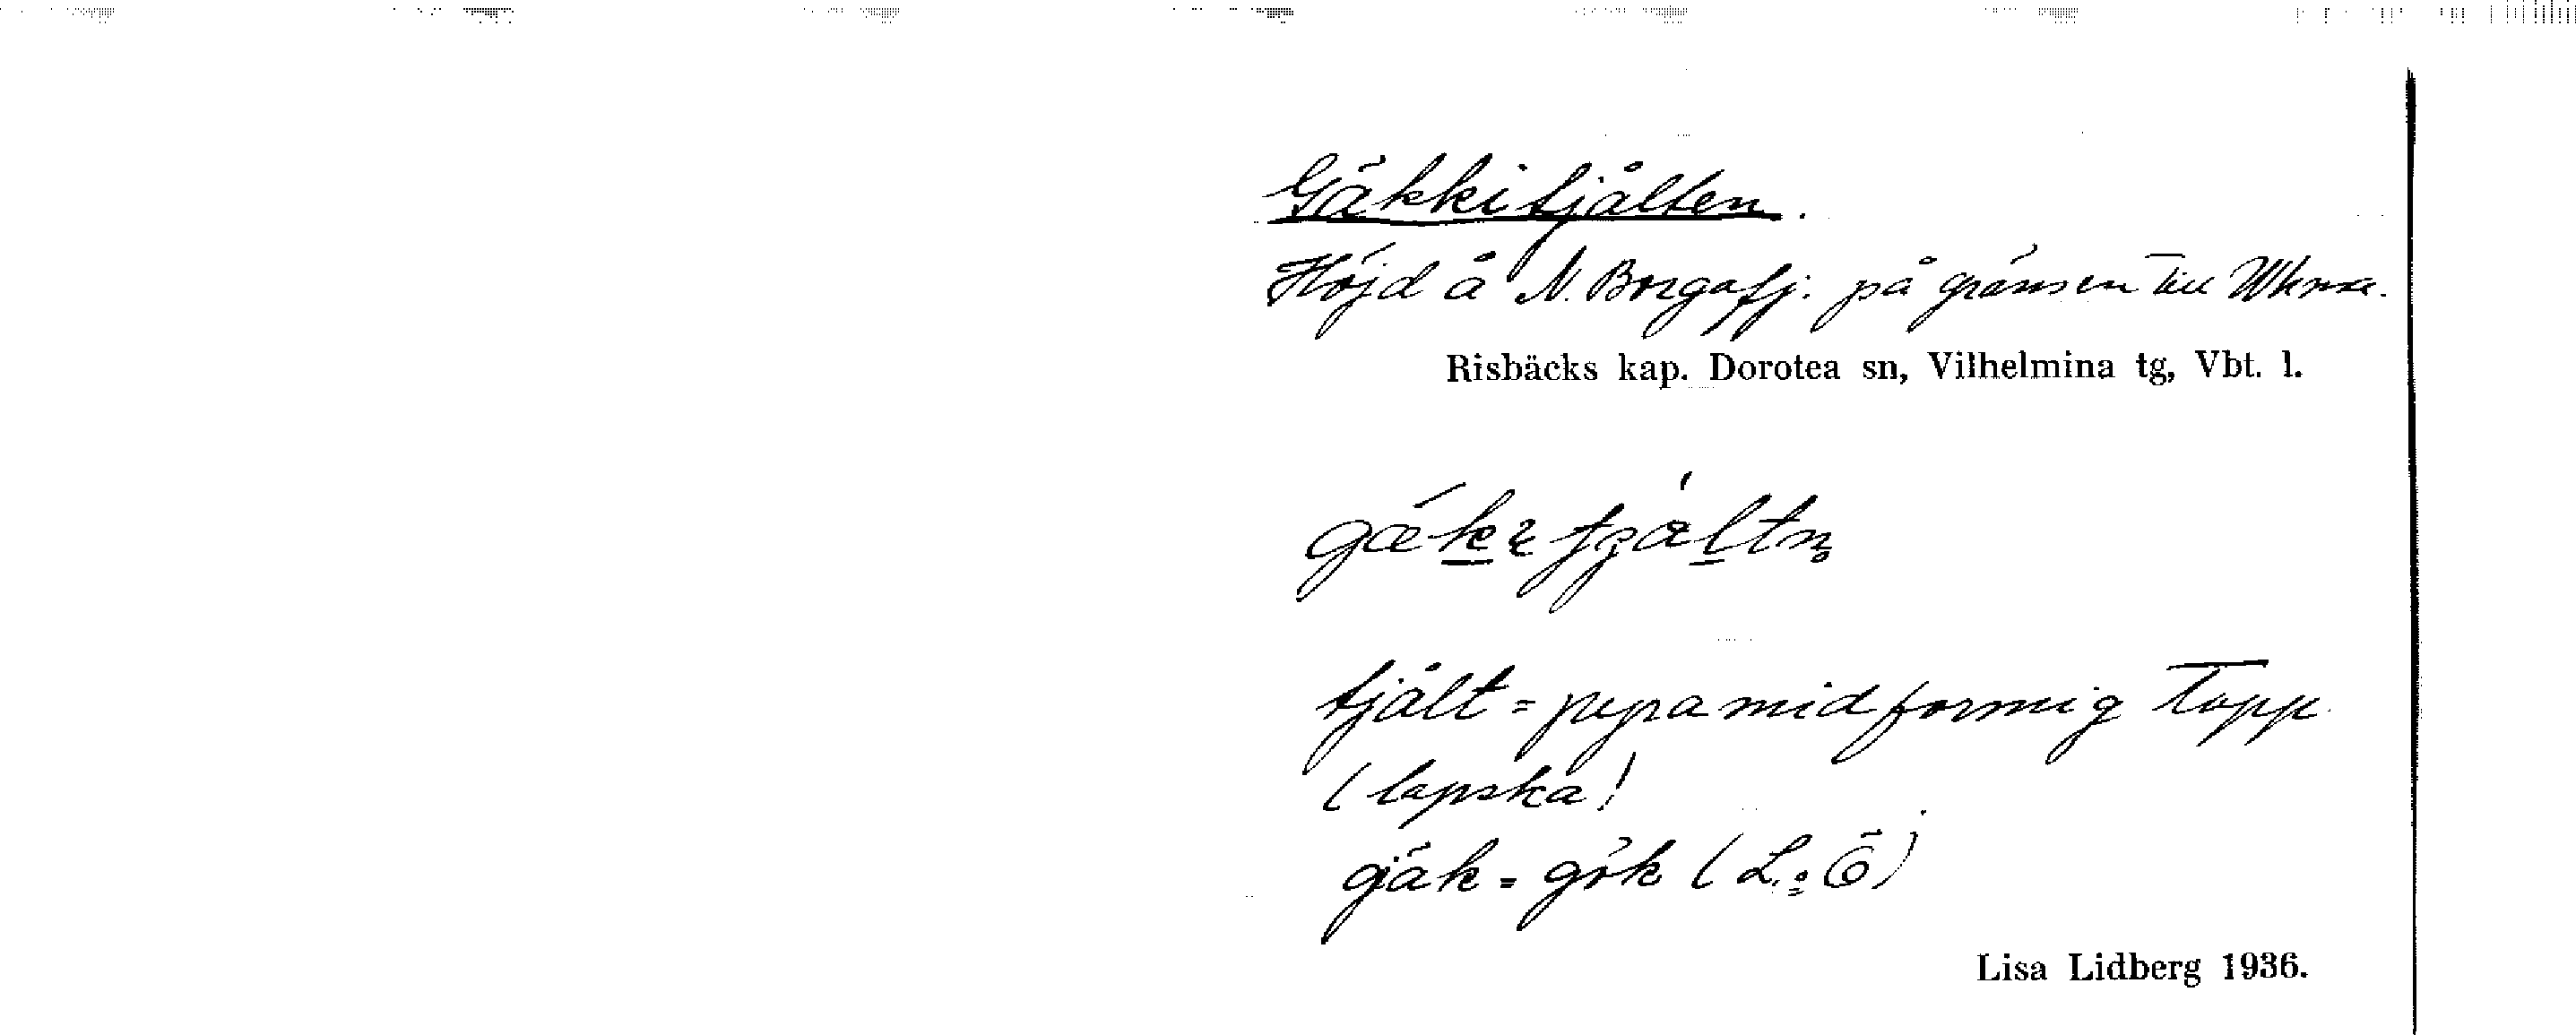 Gäkkitjålten.
Höjd å N. Borgafj. på gränsen till Whma.
Risbäcks kap. Dorotea sn, Vilhelmina tg, Vbt. l.
tjålt = pyramidformig topp
(lapska!
gjäk = gök (L. Ö)
Lisa Lidberg 1936.